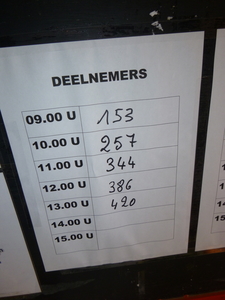 DEELNEMERS
09.00 U 153
10.00 U 257
11.00 U 344
12.00 U 386
13.00 U 420
14.00 U
15.00 U